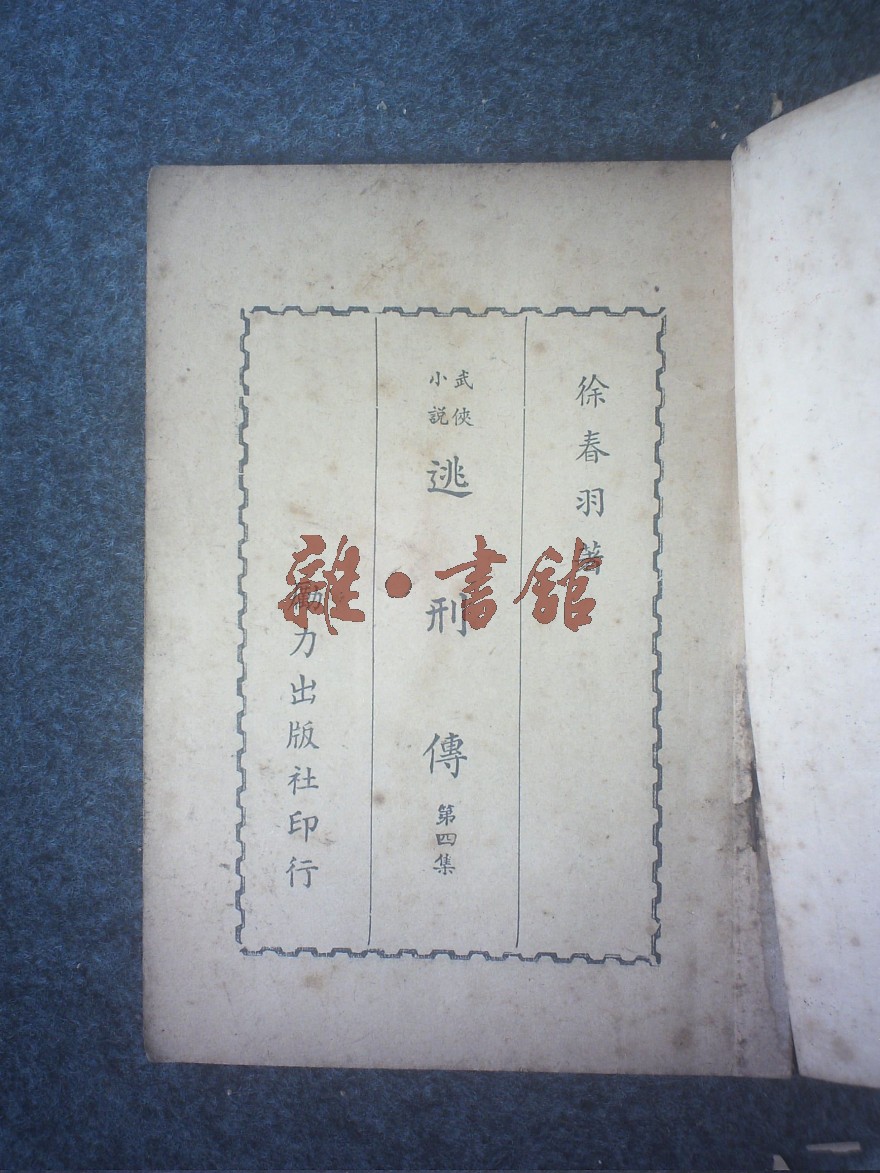 徐春羽著
武俠
小說
逃刑傳 第四集
勵力出版社印行
雜·書館